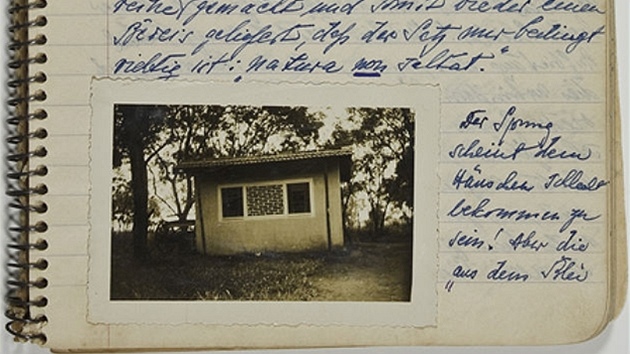 reihe) gemacht und somit wieder einen
Beweis geliefert, daß der Satz nur bedingt
richtig ist: "natura non saltat."
Der Sprung
scheint dem
Häuschen schlecht
bekommen zu
sein! Aber die
"aus dem